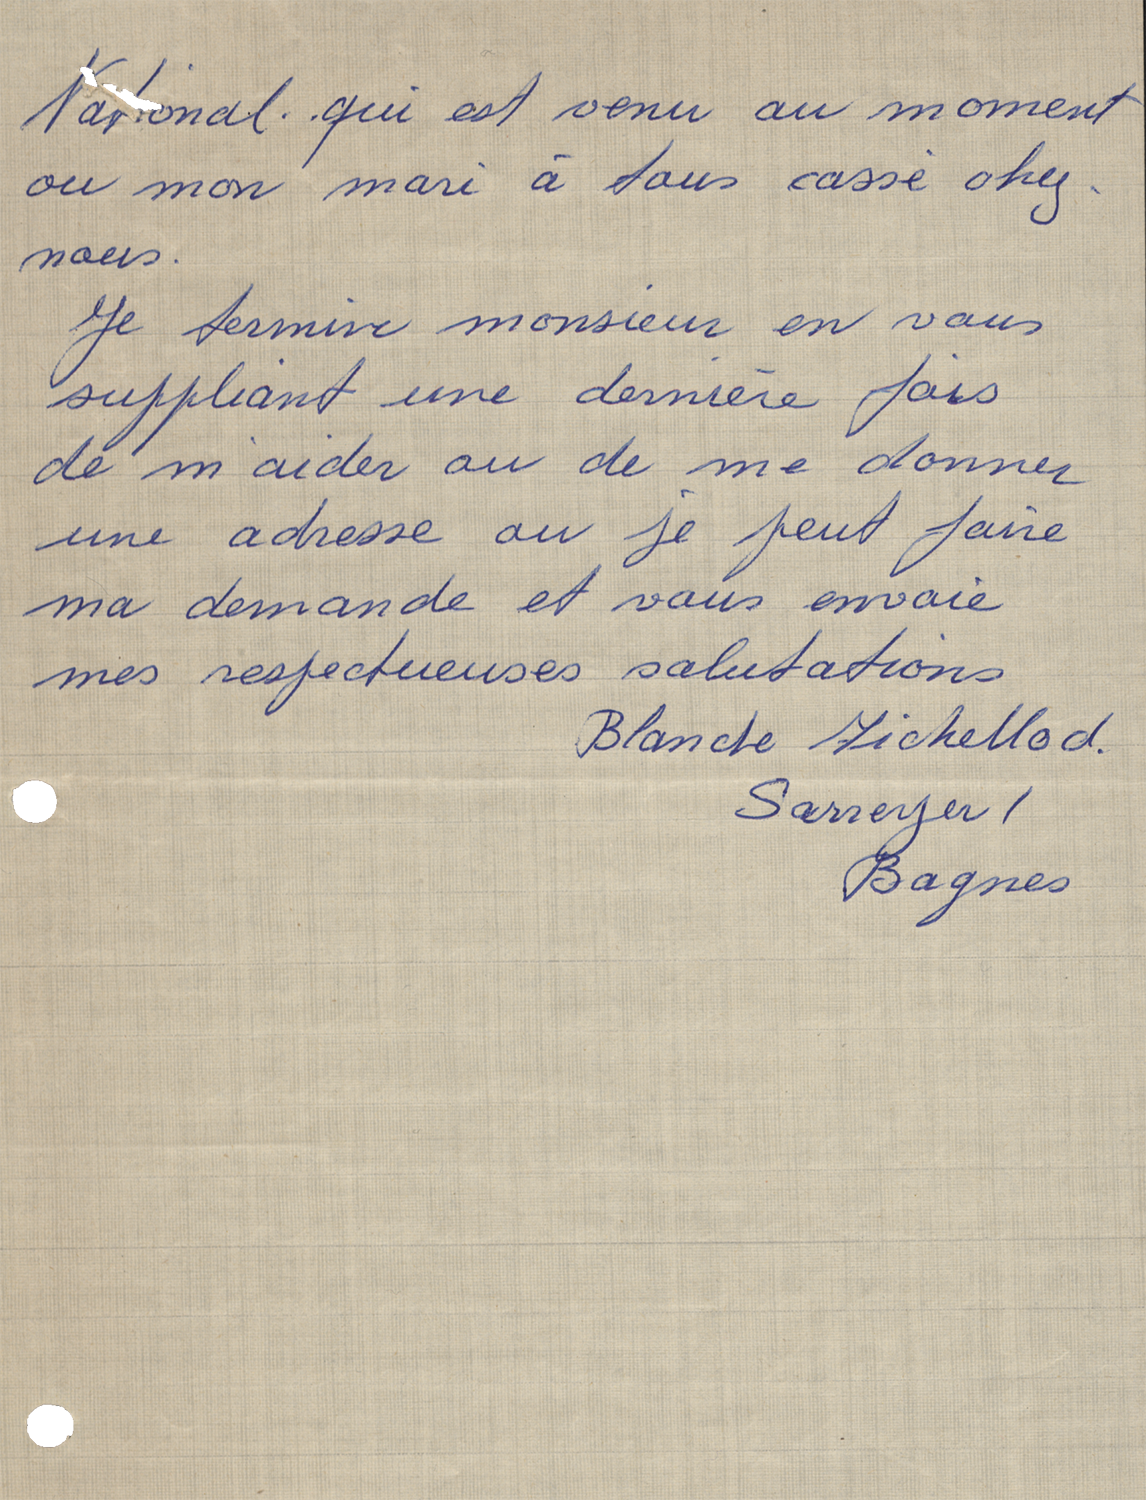 National. qui est venu au moment
ou mon mari à tous cassé chez
nous.
Je termine monsieur en vous
suppliant une dernière fois
de m'aider ou de me donner
une adresse ou je peut faire
ma demande et vous envoie
mes respectueuses salutations
Blanche Michellod.
Sarreyer /
Bagnes